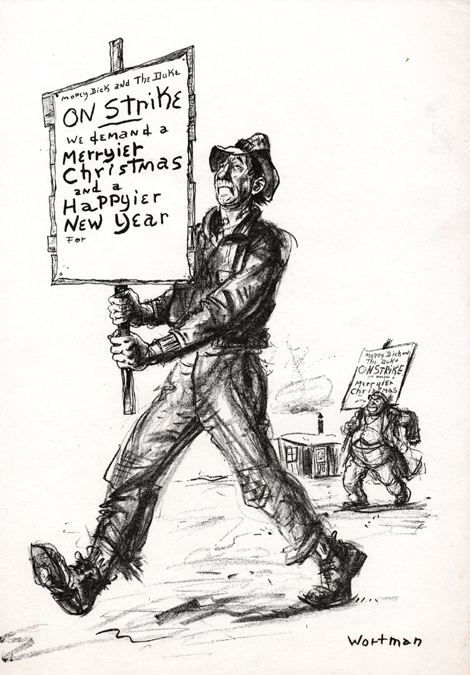 Mopey Dick and The Duke
ON StriKE
We demand a
Merryier
Christmas
and a
Happyier
New Year
For
Mopey Dick and
The Duke
ON STRIKE
we demand a
Merryier
Christmas
Wortman